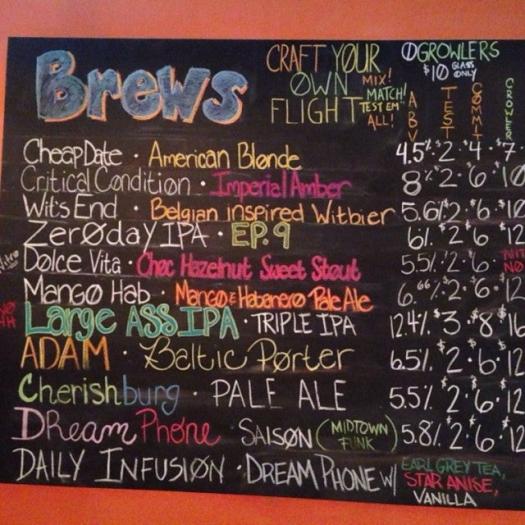 Brews
CRAFT YOUR OWN FLIGHT
MIX! MATCH! TEST EM ALL!
ØGROWLERS
$10 GLASS ONLY
ABV TEST CØMIT CROWLER
CheapDate · American Blønde 4.5% · $2 · $4 · $7
Critical Cønditiøn · Imperial Amber 8% · 2 · 6 · $10
Wit's End · Belgian inspired Witbier 5.6% · 2 · 6 · $10
Zerøday IPA · EP. 9 6% · $2 · $6 · $12
Nitro Dølce Vita · Choc Hazelnut Sweet Støut 5.5% · $2 · $6
Mangø Hab · Mangø & Habanerø Pale Ale 6.66% · 2 · 6 · 12
Large ASS IPA · TRIPLE IPA 12.4% · $3 · $8 · 16
ADAM · Baltic Pørter 6.5% · $2 · $6 · $12
Cherishburg · PALE ALE 5.5% · $2 · $6 · $12
DReam Phøne SAISØN (MIDTOWN FUNK) 5.8% · $2 · $6 · $12
DAILY INFUSIØN · DREAM PHONE W/ EARL GREY TEA, STAR ANISE, VANILLA